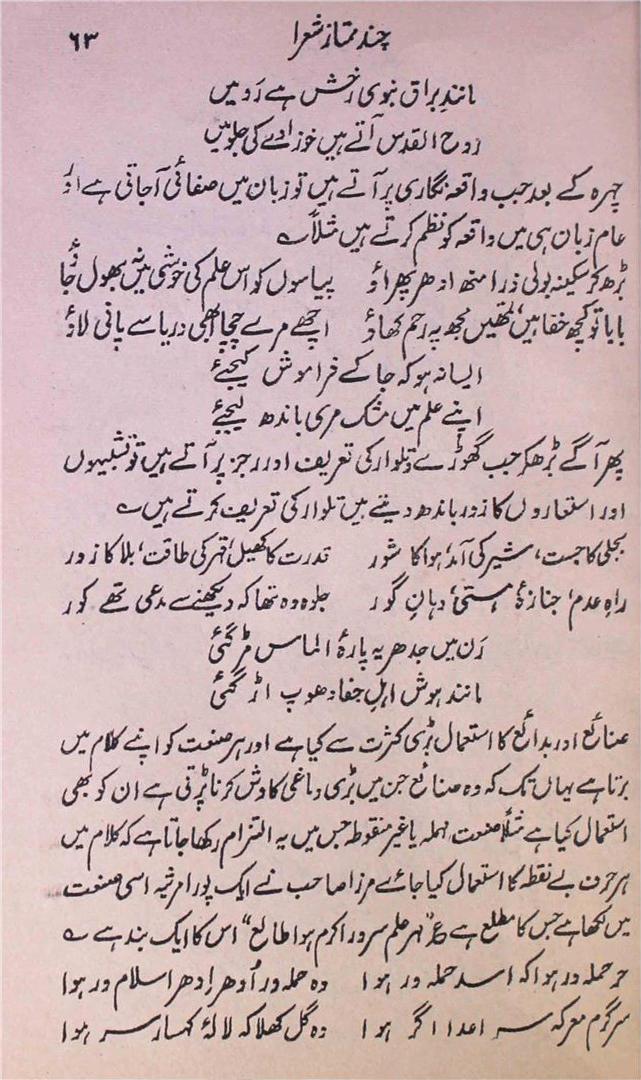 چند ممتاز شعرا ۶۳
مانندِ براق نبوی رخش ہے رَو میں
روح القدس آتے ہیں خوزادے کی جلو میں
چہرہ کے بعد جب واقعہ نگاری پر آتے ہیں تو زبان میں صفائی آجاتی ہے اور
عام زبان ہی میں واقعہ کو نظم کرتے ہیں مثلاً ؎
بڑھ کر سکینہ بولی ذرا منھ ادھر پھراؤ پیاسوں کو اس علم کی خوشی میں نہ بھول جاؤ
بابا تو کچھ خفا ہیں، تمھیں مجھ پہ رحم کھاؤ اچھے مرے چچا ابھی دریا سے پانی لاؤ
ایسا نہ ہو کہ جا کے فراموش کیجئے
اپنے علم میں مشک مری باندھ لیجئے
پھر آگے بڑھکر جب گھوڑے و تلوار کی تعریف اور رجز پر آتے ہیں تو تشبیہوں
اور استعاروں کا زور باندھ دیتے ہیں تلوار کی تعریف کرتے ہیں ؎
بجلی کا جست، شیر کی آمد، ہوا کا شور قدرت کا کھیل، قہر کی طاقت، بلا کا زور
راہِ عدم، جنازۂ ہستی، دہانِ گور جلوہ وہ تھا کہ دیکھنے سے مدعی تھے کور
رَن میں جدھر یہ پارۂ الماس مڑ گئی
مانند ہوش اہلِ جفا دھوپ اڑ گئی
صنائع اور بدائع کا استعمال بڑی کثرت سے کیا ہے اور ہر صنعت کو اپنے کلام میں
برتا ہے یہاں تک کہ وہ صنائع جن میں بڑی دماغی کاوش کرنا پڑتی ہے ان کو بھی
استعمال کیا ہے مثلاً صنعت مہملہ یا غیر منقوطہ جس میں یہ التزام رکھا جاتا ہے کہ کلام میں
ہر حرف بے نقطہ کا استعمال کیا جائے مرزا صاحب نے ایک پورا مرثیہ اسی صنعت
میں لکھا ہے جس کا مطلع ہے ع "مہر علم سرور اکرم ہوا طالع" اس کا ایک بند ہے ؎
حر حملہ ور ہوا کہ اسد حملہ ور ہوا وہ حملہ ور اُدھر اِدھر اسلام ور ہوا
سرگرم معرکہ سر اعدا اگر ہوا وہ گل کھلا کہ لالۂ کہسار سر ہوا